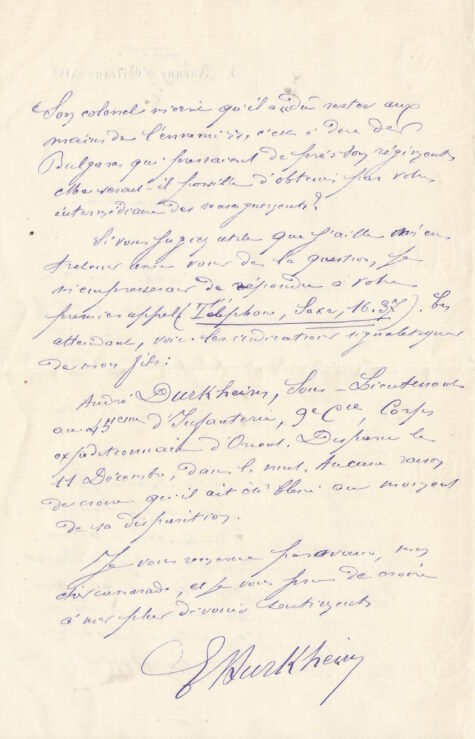 Son colonel m'écrit qu'il a dû rester aux
mains de l'ennemi, c'est à dire des
Bulgares qui pressaient de près son régiment.
serait-il possible d'obtenir par votre
intermédiaire des renseignements?
Si vous jugiez utile que j'aille m'en
entretenir avec vous de la question, je
m'empresserai de répondre à votre
premier appel (Téléphone, Saxe, 16.37). En
attendant, voici les indications signalétiques
de mon fils:
André Durkheim, Sous-Lieutenant
au 45eme d'Infanterie, 9e Cie, Corps
expéditionnaire d'Orient. Disparu le
11 Décembre, dans la nuit. Aucune raison
de croire qu'il ait été blessé au moment
de sa disparition.
Je vous remercie par avance, mon
cher camarade, et je vous prie de croire
à mes plus dévoués sentiments
E Durkheim